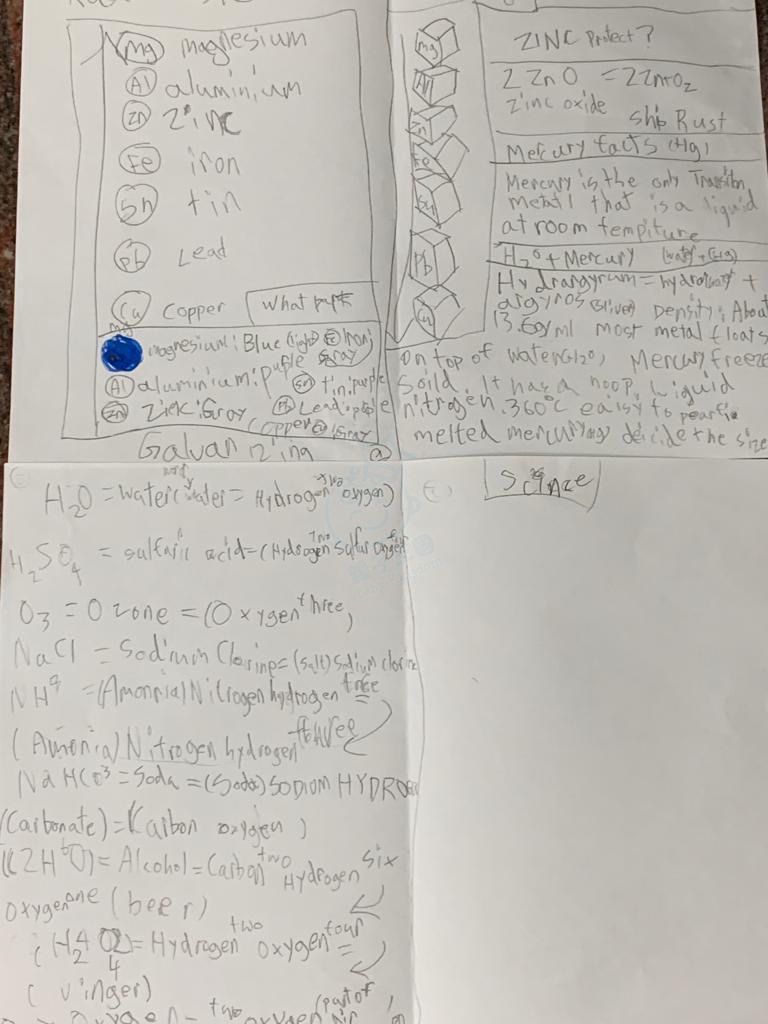 Mg magnesium
Al aluminium
Zn Zinc
Fe iron
Sn tin
Pb Lead
Cu Copper
What
Mg
magnesium: Blue (light) Fe Iron:
Gray
Al aluminium: purple Sn tin: purple
Zn Zink: Gray Pb Lead: purple
Copper Cu: Gray
Galvanizing
Mg
Zn
Fe
Pb
Cu
ZINC Protect?
2 ZnO = 2Zn+O2
Zinc oxide
Ship Rust
Mercury facts (Hg)
Mercury is the only Transition
metal that is a liquid
at room tempiture
H2O + Mercury
Hydrargyrum =
argyros (silver) Density: About
13.6g/ml most metal floats
on top of water H2O, Mercury freeze
Soild. It has a noop, Liquid
nitrogen. 360°C eaisy to
melted mercury deicide the size
H2O = Water (Water = Hydrogen two oxygen)
H2SO4 = sulfaric acid = (Hydrogen Two Sulfur
O3 = Ozone = (Oxygen three)
NaCl = Sodium Clorine = (salt) Sodium clorine
= (Amonnia) Nitrogen hydrogen tree
(Amonia) Nitrogen hydrogen three
NaHCO3 = Soda = (Soda) SODIUM HYDROGEN
(Carbonate) = Karbon oxygen)
(C2H6O) = Alcohol = Carbon two Hydrogen six
oxygen one (beer)
= Hydrogen two oxygen four =
(vinger)
Oxygen = two oxygen (part of
Scinze